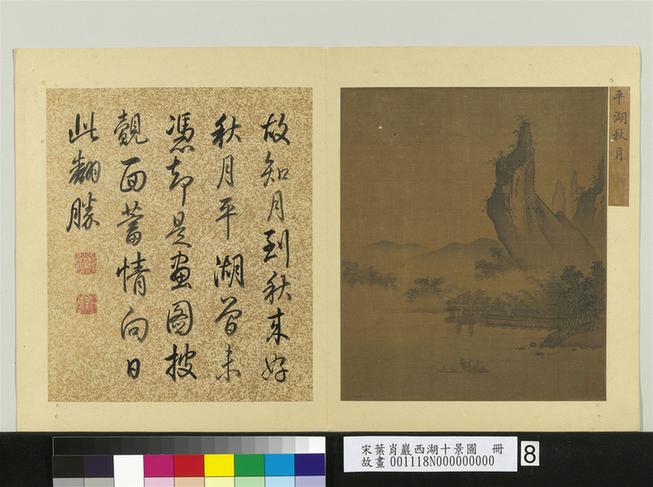 故知月到秋來好
秋月平湖曾未
憑却是畫圖披
覿面舊情向日
此翻勝
平湖秋月
宋葉肖巖西湖十景圖 冊
故畫 001118N000000000
8